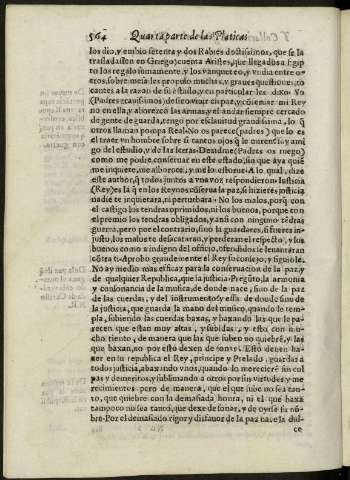 564 Quarta parte de las Platicas
los dio, y embio setenta y dos Rabies doctissimos, que se la
trasladassen en Griego) cuenta Aristes, que llegados a Egip
to los regalo sumamente, y los vanqueteo, y vuida entre o-
tros, sobre mesa les propuso muchas, y graues questiones, to
cantes a la razon de su estado, y en particular les dixo. Yo
(Padres grauissimos) desseo viuir en paz, y conseruar mi Rey
no en ella, y aborrezco las armas, y el andar siempre cercado
de gente de guarda, tengo por esclauitud grandissima, lo que
otros llaman pompa Real. No os parece (padres) que lo es
el traer vn hombre sobre si tantos ojos que le miren? si y ami
go del estudio, y de las letras. Dezidme (Padres os ruego)
como me podre conseruar en este estado, sin que aya quie
me inquiete, me alborote, y me lo estorue. A lo qual, dize
este author, que todos juntos a vna voz respondieron. Iusticia
(Rey) es la que en los Reynos coserua la paz, si hizieres justicia
nadie te inquietara, ni perturbara. No los malos, porque con
el castigo los tendras oprimidos, ni los buenos, porque con
el premio los tendras obligados, y assi con ninguno tendras
guerra, pero por el contrario, sino la guardares, si fueres in-
justo, los malos te desacataran, y perderan el respecto, y los
buenos como a indigno del officio, ofendidos se leuantaran
cotra ti. Aprobo grandemente el Rey su consejo, y siguiole.
No ay medio mas eficaz para la conseruacion de la paz, y
de qualquier Republica, que la justicia. Pregunto, la armonia
y consonancia de la musica, de donde nace, sino de la paz
de las cuerdas, y del instrumento? y essa de donde sino de
la justicia, que guarda la mano del musico, quando le tem-
pla, subiendo las cuerdas baxas, y baxando las que le pa
recen que estan muy altas, y subidas, y esto con mu-
cho tiento, de manera que las que suben no quiebre, y las
que baxan, no por esto dexen de sonar. Esto deuen ha-
zer en su republica el Rey, principe y Prelado, guardar a
todos justicia, abaxando vnos, quando lo merecieren sus cul
pas y demeritos, y sublimando a otros por sus virtudes y me
recimientos: pero de manera, que el que sube no sea tan-
to, que quiebre con la demasiada honra, ni el que baxa
tampoco no sea tanto, que dexe de sonar, y de oyrse su nom-
bre. Por el demasiado rigor y disfauor de la paz nace la dul-
ce